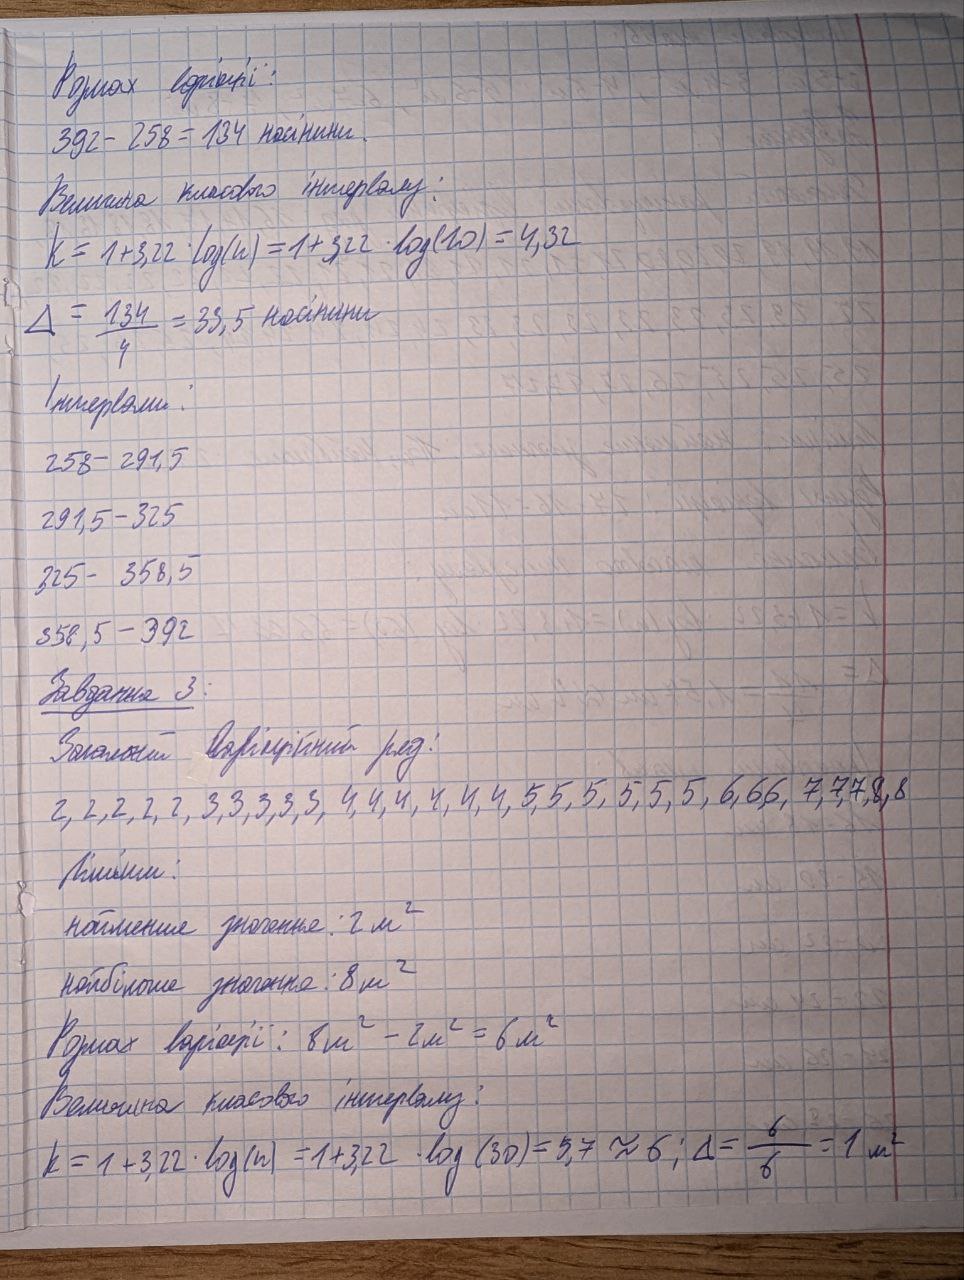 Розмах варіації:
392 - 258 = 134 насінини.
Величина класового інтервалу:
k = 1+3,22 · log(n) = 1+3,22 · log(10) = 4,32
Δ = 134/4 = 33,5 насінини
Інтервали:
258 - 291,5
291,5 - 325
325 - 358,5
358,5 - 392
Завдання 3:
Загальний варіаційний ряд:
2, 2, 2, 2, 2, 3, 3, 3, 3, 3, 4, 4, 4, 4, 4, 4, 5, 5, 5, 5, 5, 5, 6, 6, 6, 7, 7, 7, 8, 8
Ліміти:
найменше значення: 2 м²
найбільше значення: 8 м²
Розмах варіації: 8 м² - 2 м² = 6 м²
Величина класового інтервалу:
k = 1+3,22 · log(n) = 1+3,22 · log (30) = 5,7 ≈ 6; Δ = 6/6 = 1 м²